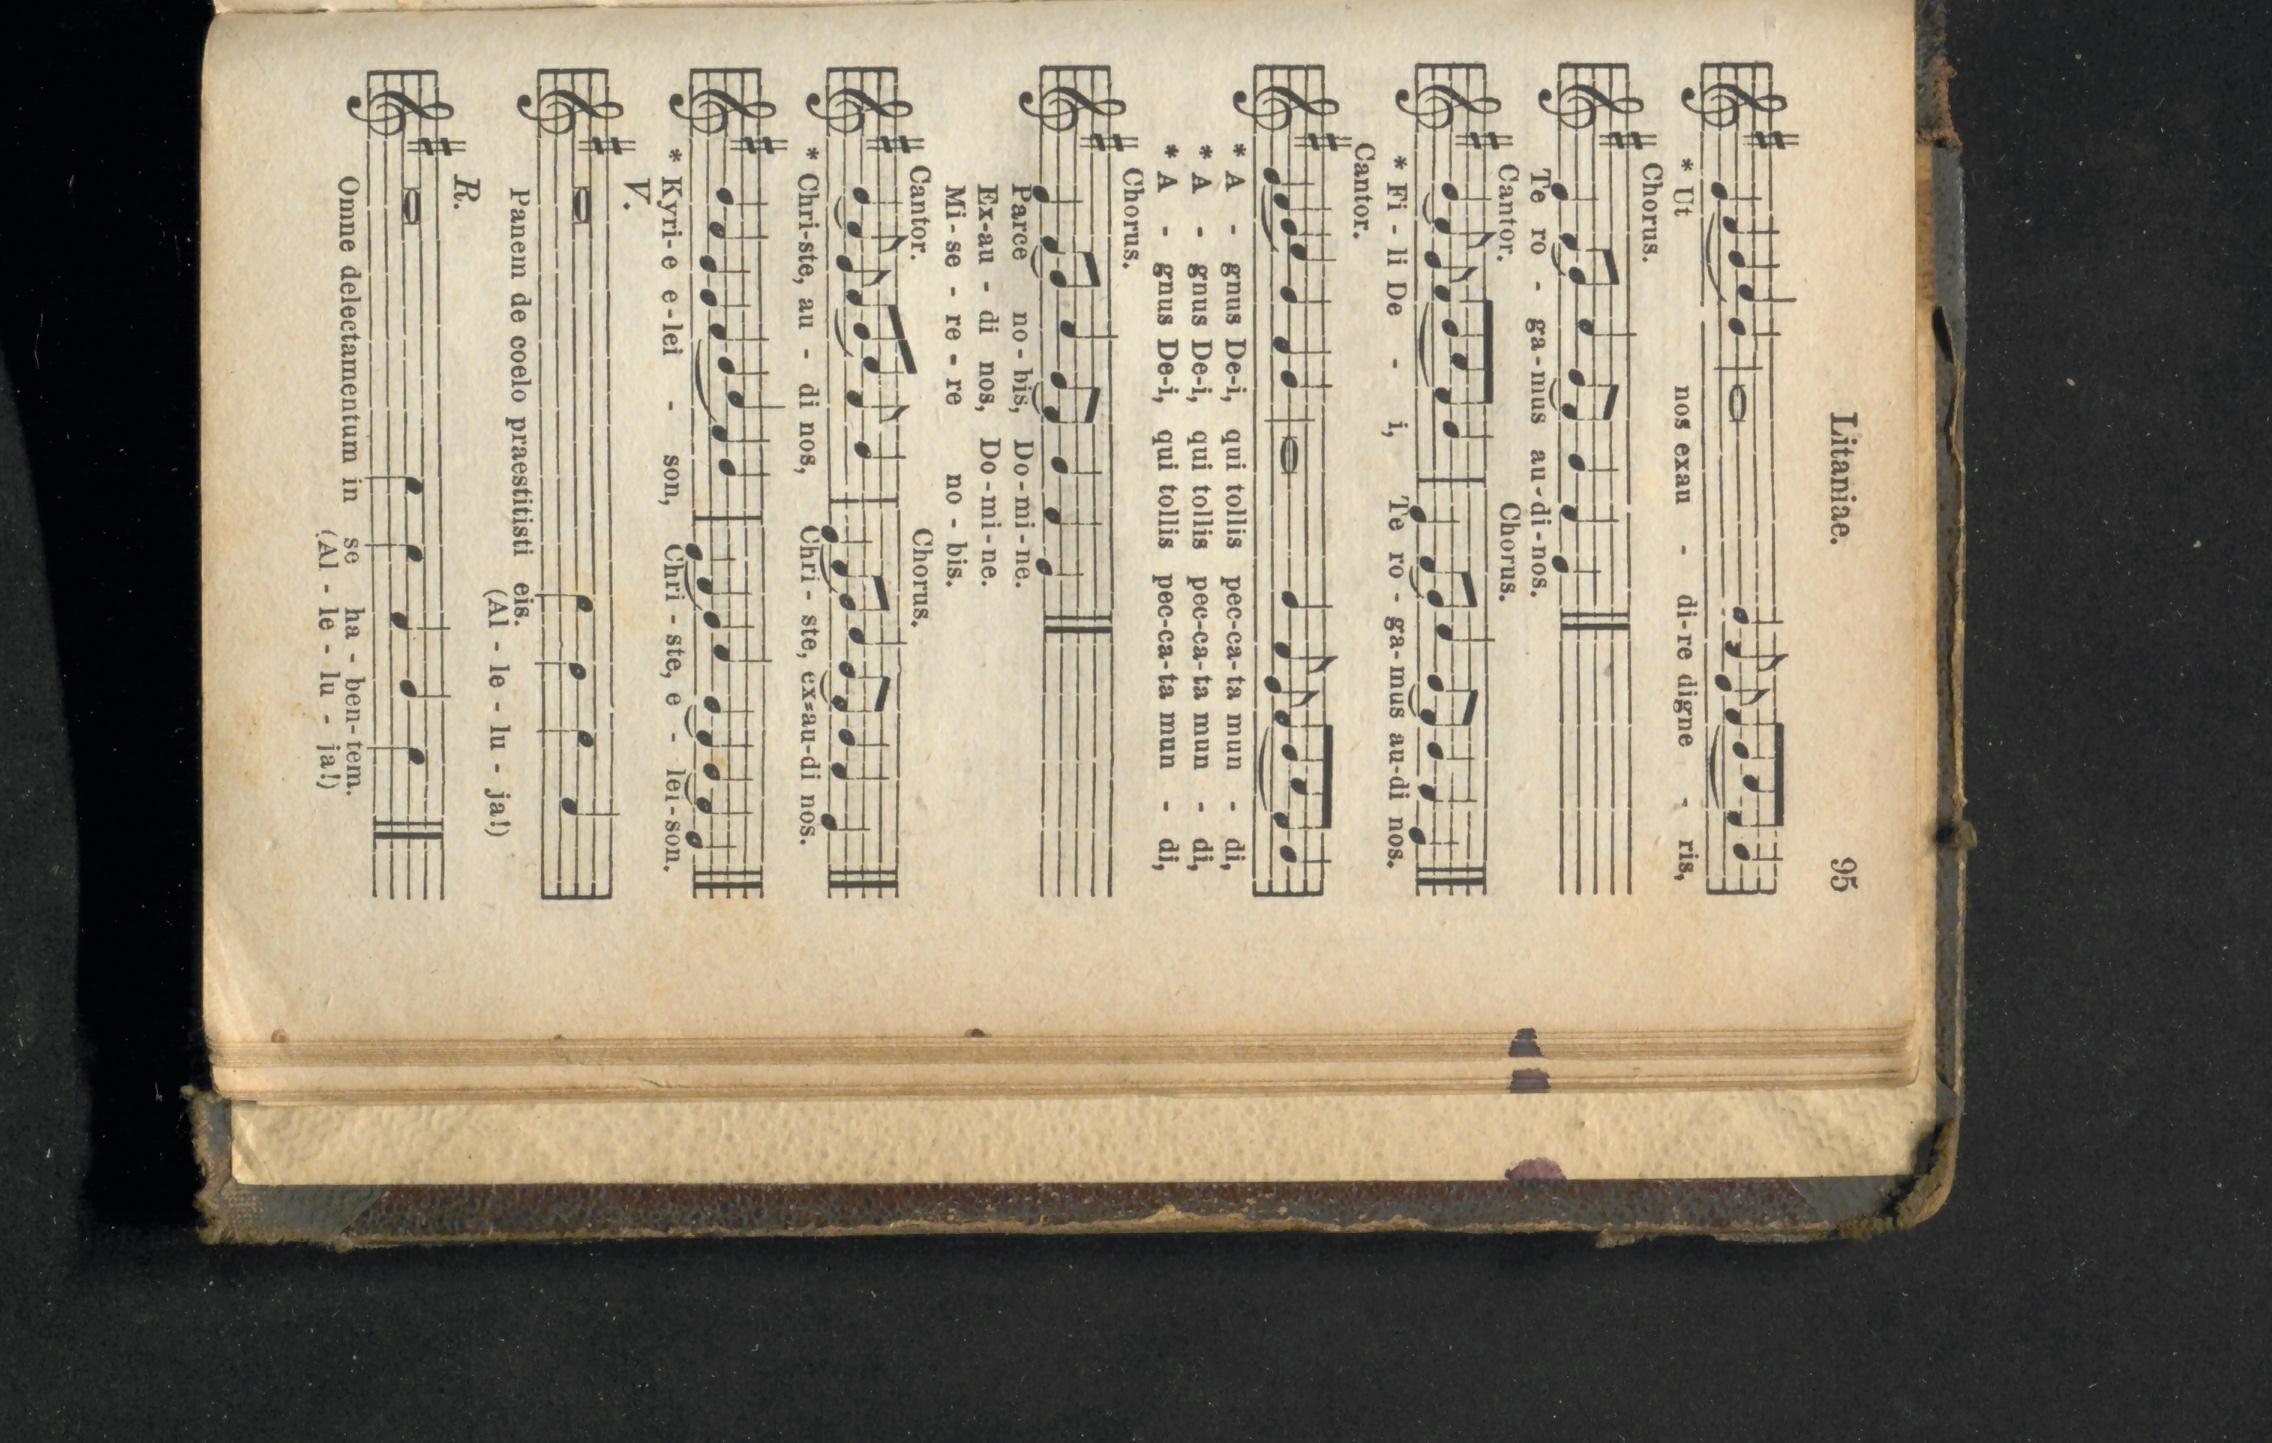 Litaniae. 95
* Ut nos exau - di-re digne - ris,
Chorus.
Te ro - ga-mus au-di-nos.
Cantor. Chorus.
* Fi - li De - i, Te ro - ga-mus au-di nos.
Cantor.
* A - gnus De-i, qui tollis pec-ca-ta mun - di,
* A - gnus De-i, qui tollis pec-ca-ta mun - di,
* A - gnus De-i, qui tollis pec-ca-ta mun - di,
Chorus.
Parce no-bis, Do-mi-ne.
Ex-au - di nos, Do-mi-ne.
Mi-se - re-re no-bis.
Cantor. Chorus.
* Chri-ste, au - di nos, Chri - ste, ex=au-di nos.
* Kyri-e e-lei - son, Chri - ste, e - lei-son.
V.
Panem de coelo praestitisti eis.
(Al - le - lu - ja!)
R.
Omne delectamentum in se ha - ben-tem.
(Al - le - lu - ja!)